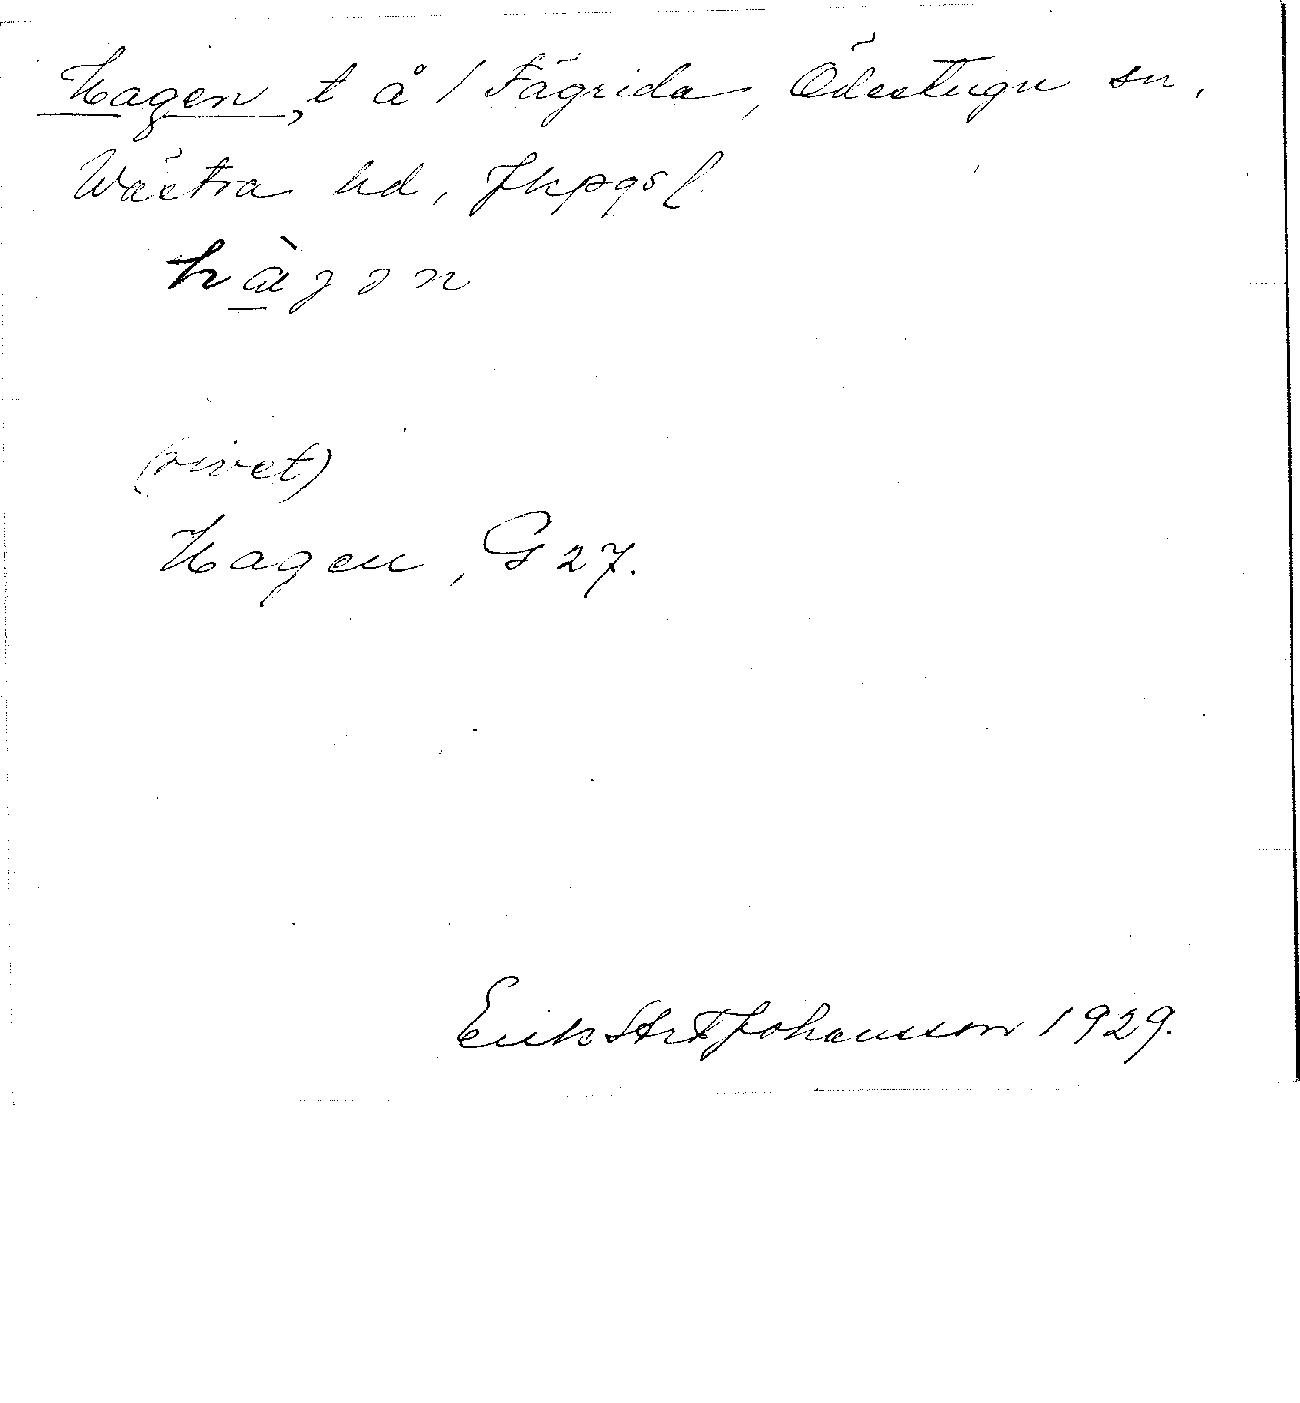 Hagen, t å 1 Fågrida, Ödestugu sn,
Wästra hd, Jkpgs l
hàgən
(rivet)
Hagen, G 27.
Erik Johansson 1929.